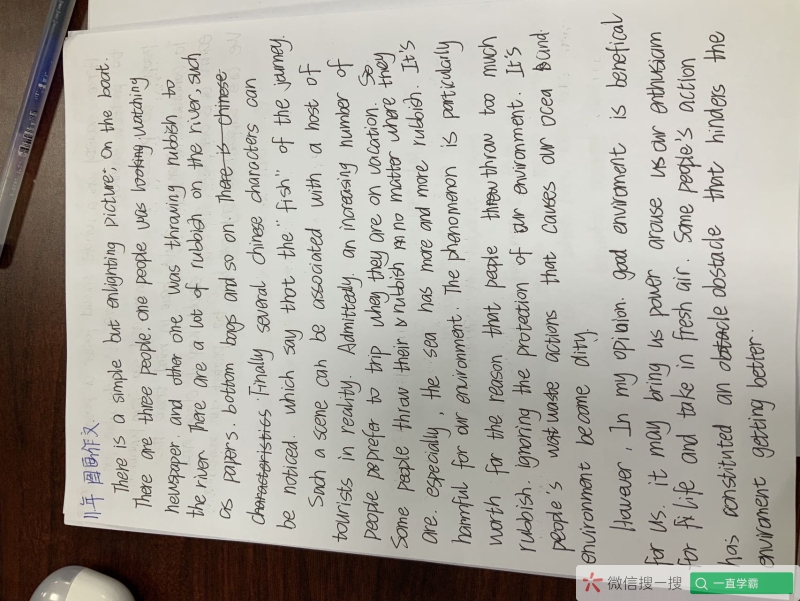 11年 图画作文
There is a simple but enlighting picture; On the boat.
There are three people. one people was looking watching
newspaper. and other one was thraving rubbish to
the river. There are a lot of rubbish on the river, such
as papers. bottom bags and so on. There is chinese
characteristics. Finally several chinese characters can
be noticed. which say that the "fish" of the journey.
Such a scene can be associated with a host of
tourists in reality. Admittedly. an increasing number of
people prefer to trip when they are on vacation. So
Some people thraw their rubbish no matter where they
are. especially, the sea has more and more rubbish. It's
harmful for our environment. The phenomenon is particularly
worth for the reason that people threw thraw too much
rubbish. Ignoring the protection of our environment. It's
people's waste actions that causes our ocea and
environment become dirty.
However, In my opinion. good enviroment is benefical
for us. it may bring us power arouse us our enthusiam
for life and take in fresh air. Some people's action
has constituted an obstacle obstacle that hinders the
enviroment getting better.
微信搜一搜
一直学霸